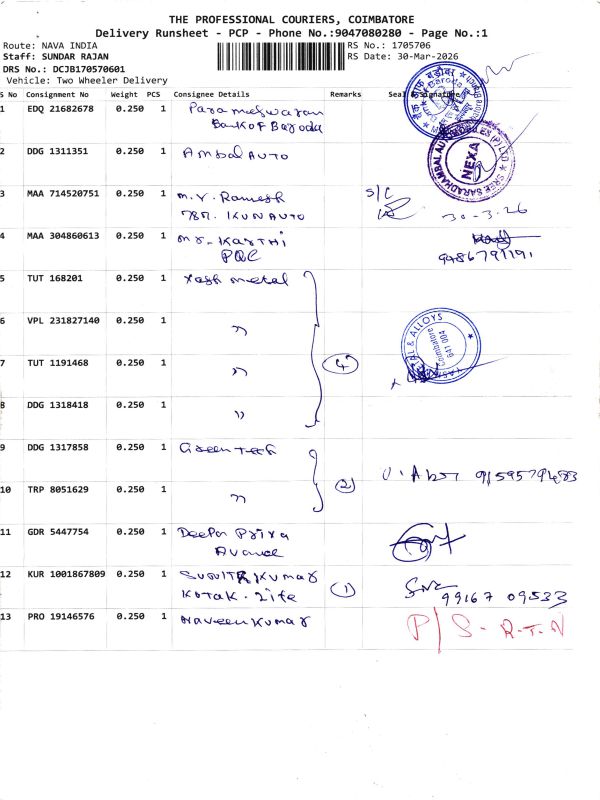 THE PROFESSIONAL COURIERS, COIMBATORE
Delivery Runsheet - PCP - Phone No.:9047080280 - Page No.:1
Route: NAVA INDIA RS No.: 1705706
Staff: SUNDAR RAJAN RS Date: 30-Mar-2026
DRS No.: DCJB170570601
Vehicle: Two Wheeler Delivery
S No Consignment No Weight PCS Consignee Details Remarks Seal Signature
1 EDQ 21682678 0.250 1 Parameswaran
Bank of Baroda
2 DDG 1311351 0.250 1 Ambal AUTO
SREE SARADHAMBAL AUTOMOBILES (P) LTD
NEXA
3 MAA 714520751 0.250 1 M.V. Ramesh S/C
KUN AUTO 30-3-26
4 MAA 304860613 0.250 1 Mr. KARTHI
9486791191
5 TUT 168201 0.250 1 Yash metal
6 VPL 231827140 0.250 1 "
7 TUT 1191468 0.250 1 " 4
YASH METAL & ALLOYS
Coimbatore
641 004
8 DDG 1318418 0.250 1 "
9 DDG 1317858 0.250 1 Green Tech
10 TRP 8051629 0.250 1 " 2
11 GDR 5447754 0.250 1 Deepa Priya
12 KUR 1001867809 0.250 1 SUNITH KUMAR 1
Kotak Life 99167 09533
13 PRO 19146576 0.250 1 Naveen Kumar P/S - R-T-N